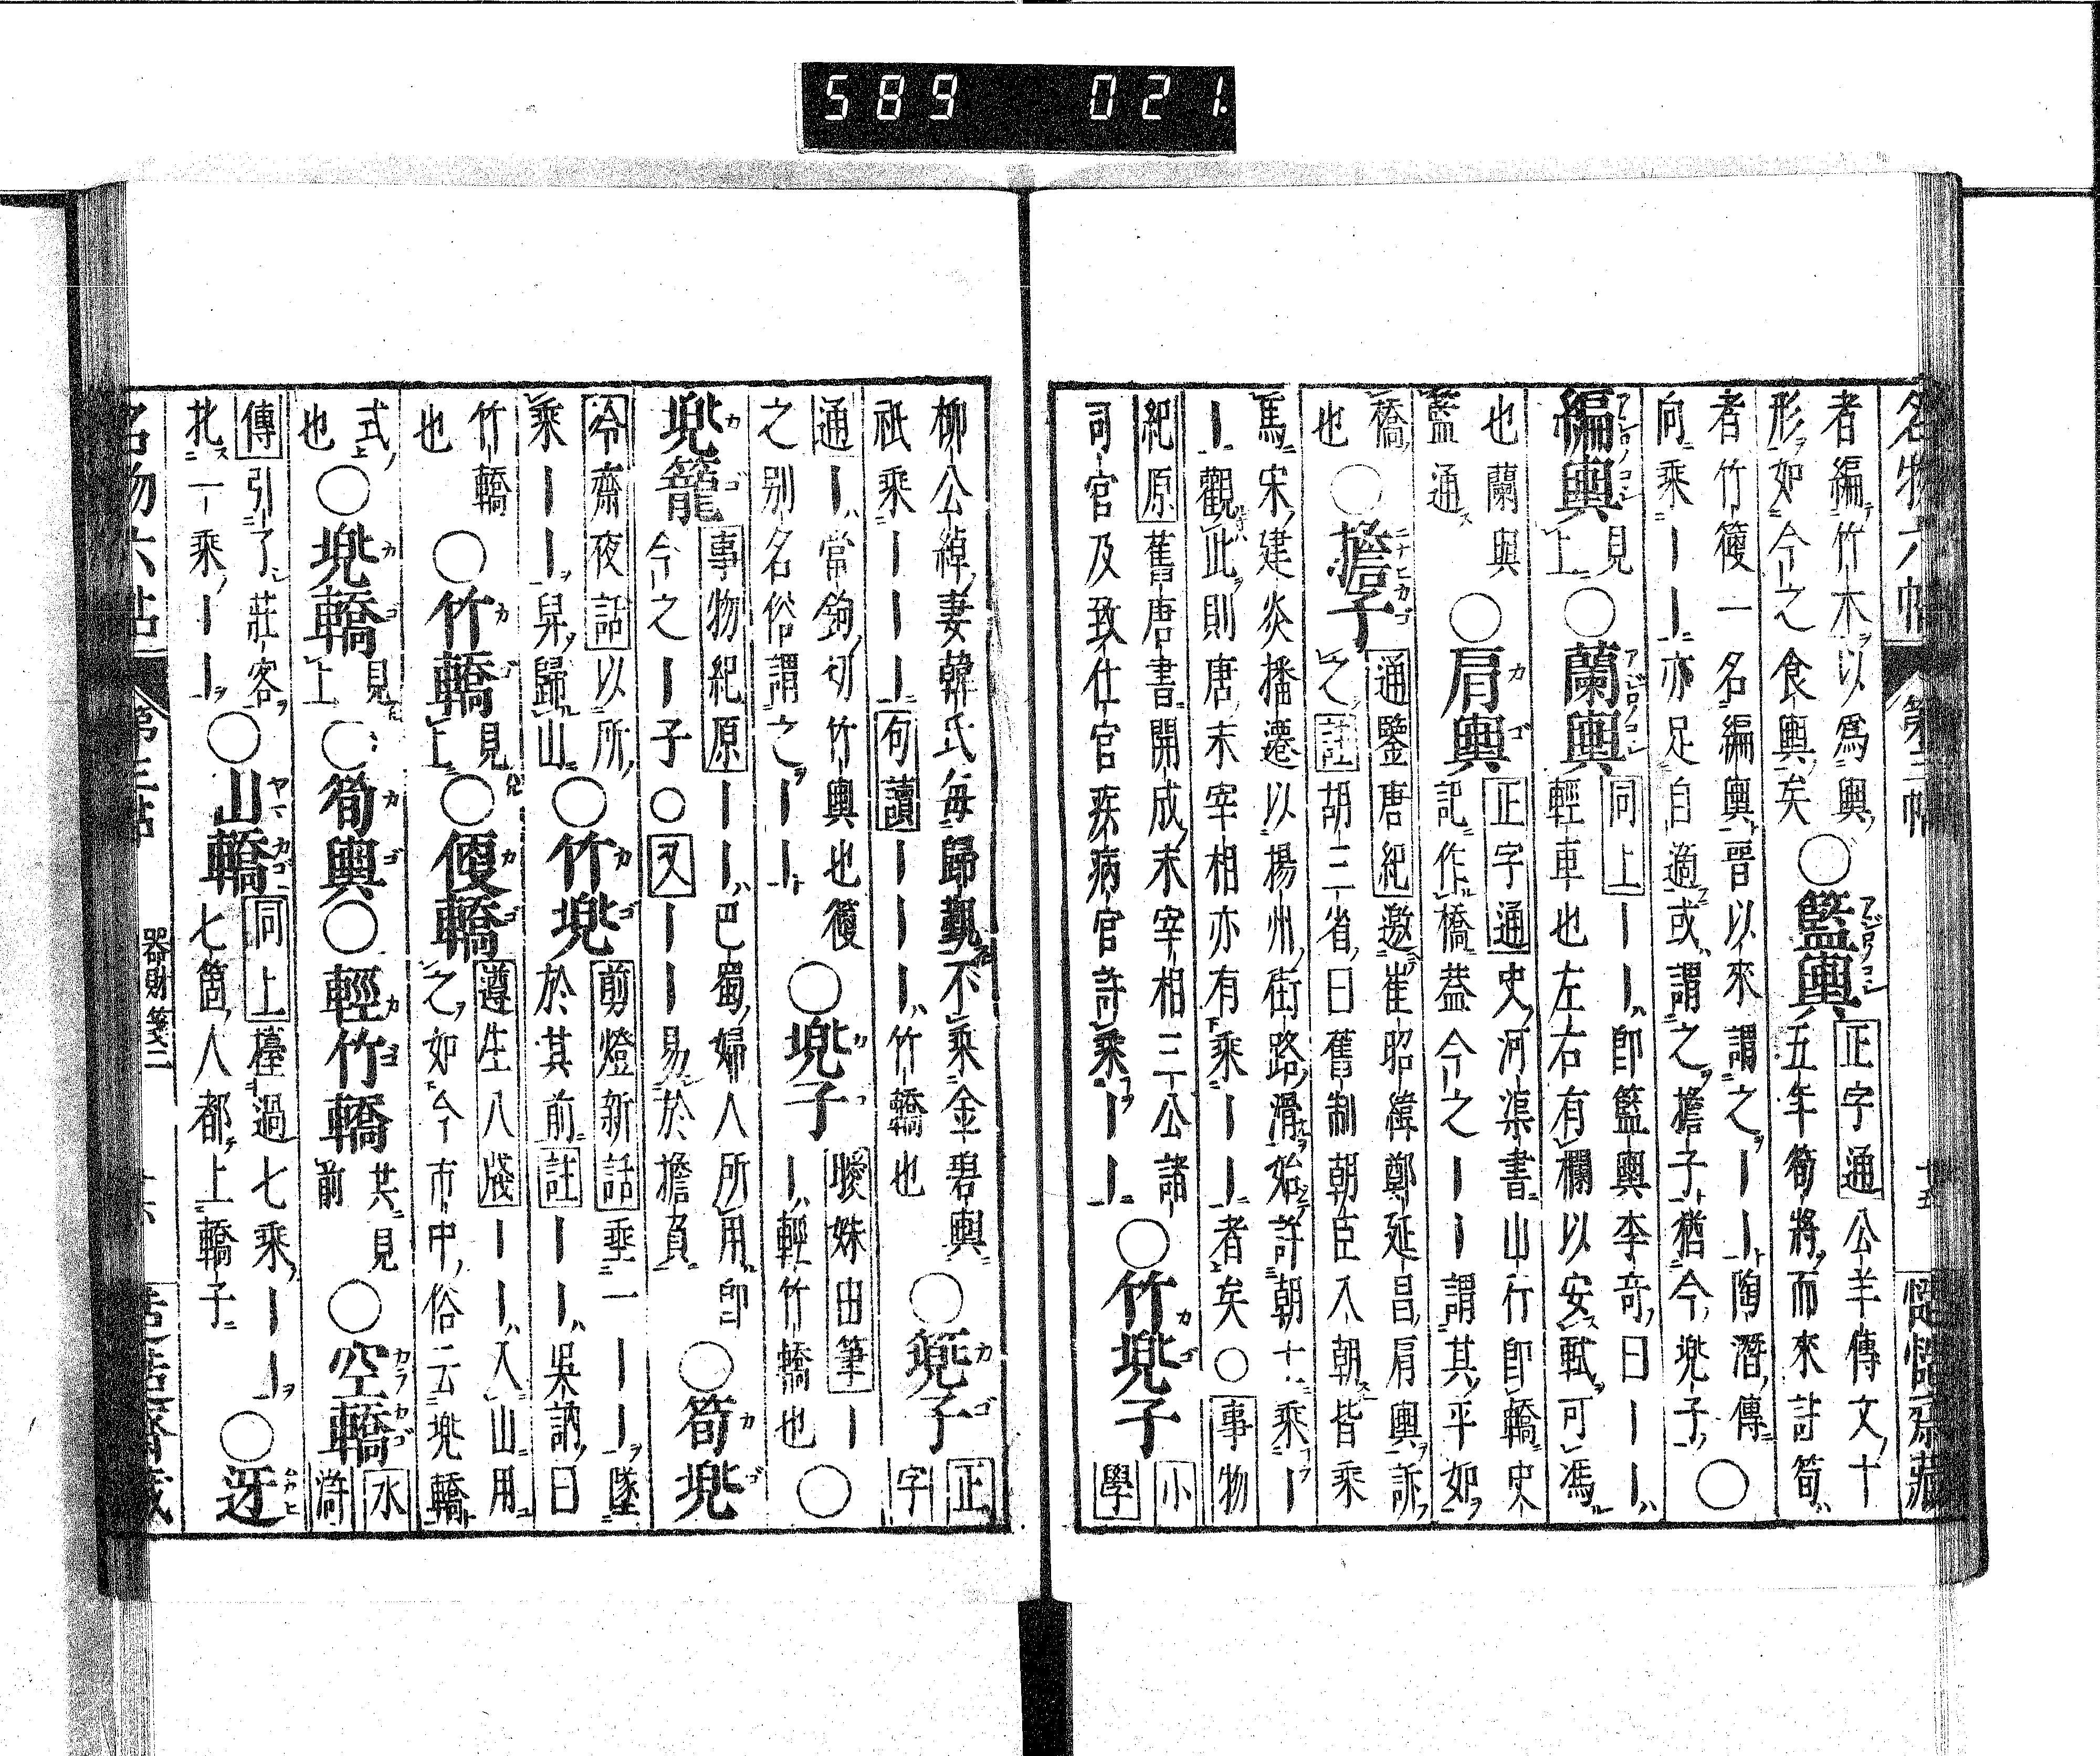 589 021.
名物六帖 第三帖 十五 藏
者編竹木以爲輿
形如今之食輿矣○籃輿正字通公羊傳文十
五年筍將而來註筍
者竹䈏一名編輿晉以來謂之ーー陶潛傳
向乘ーー亦足自適或謂之檐子猶今兜子○
編輿見上○蘭輿同上ーー卽籃輿李奇曰ーー
輕車也左右有欄以安軾可馮
也蘭輿
籃通○肩輿正字通史河渠書山行卽轎史
記作橋葢今之ーー謂其平如
橋
也○檐子通鑒唐紀邀崔昭緯鄭延昌肩輿訴
之註胡三省曰舊制朝臣入朝皆乘
馬宋建炎播遷以揚州街路滑始許朝士乘ー
ー觀此則唐末宰相亦有乘ーー者矣○事物
紀原舊唐書開成末宰相三公諸
司官及致仕官疾病官許乘ーー○竹兜子小
學
柳公綽妻韓氏每歸覲不乘金碧輿
祇乘ーーー句讀ーーー竹轎也○篼子正
字
通ー常鉤切竹輿也䈏
之別名俗謂之ーー○兜子曖姝由筆ー
ー輕竹轎也○
兜籠事物紀原ーー巴蜀婦人所用卽
今之ー子○又ーー易於擔負○筍兜
冷齋夜話以所
乘ーー舁歸山○竹兜剪燈新話垂一ーー墜
於其前註ーー吳訥曰
竹轎
也○竹轎見上○㑻轎遵生八牋ーー入山用
之如今市中俗云兜轎
式
也○兜轎見上○筍輿○輕竹轎共見前○空轎水
滸
傳引了莊客
扎一乘ーー○山轎同上擡過七乘ーー
七箇人都上轎子○迓
名物六帖 第三帖 器財箋二 十六